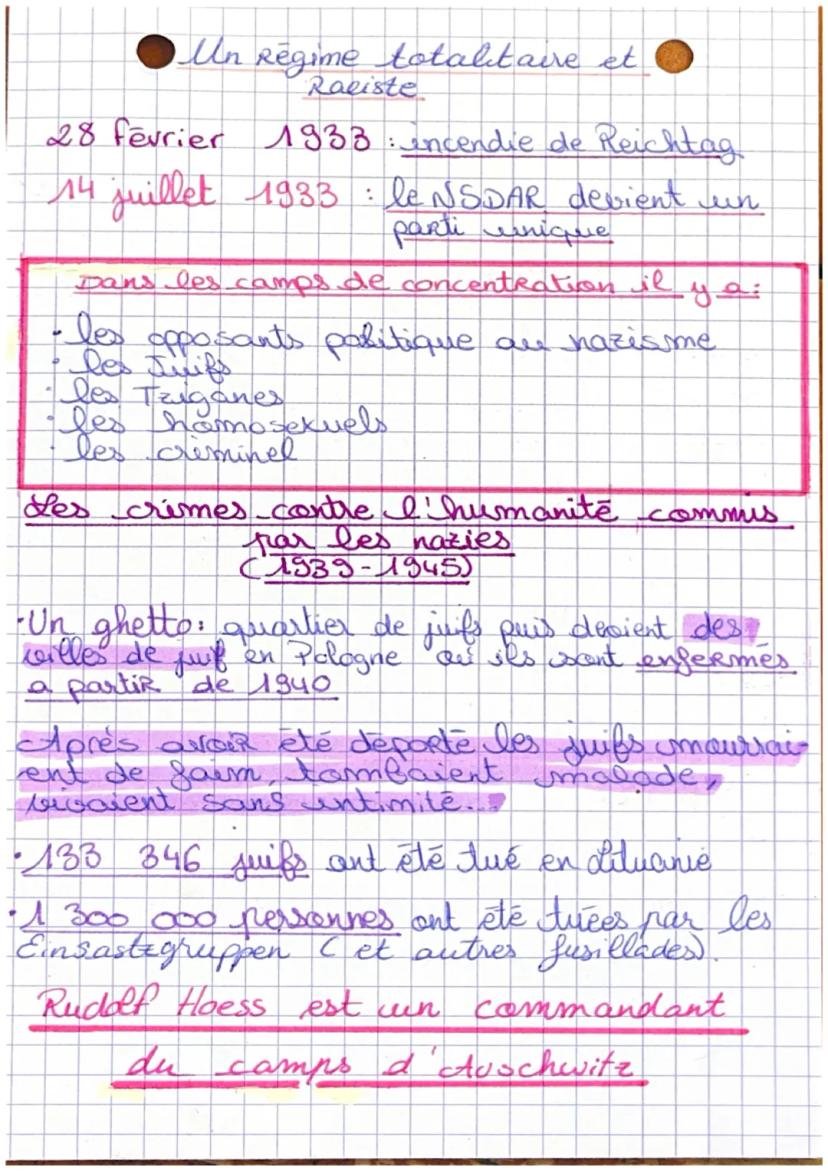 Un Régime totalitaire et
Raciste
28 février 1933 : incendie de Reichtag
14 juillet 1933 : le NSDAR devient un
parti unique
Dans les camps de concentration il y a :
• les opposants politique au nazisme
• les Juifs
• les Tziganes
• les homosexuels
• les criminel
Les crimes contre l'humanité commis
par les nazies
(1939-1945)
• Un ghetto : quartier de juifs puis devient des
villes de juif en Pologne où ils sont enfermés
a partir de 1940
Après avoir été déporté les juifs mourrai-
ent de faim, tombaient malade,
vivaient sans intimité...
• 133 346 juifs ont été tué en Lituanie
• 1 300 000 personnes ont été tuées par les
Einsastzgruppen (et autres fusillades).
Rudolf Hoess est un commandant
du camps d'Auschwitz